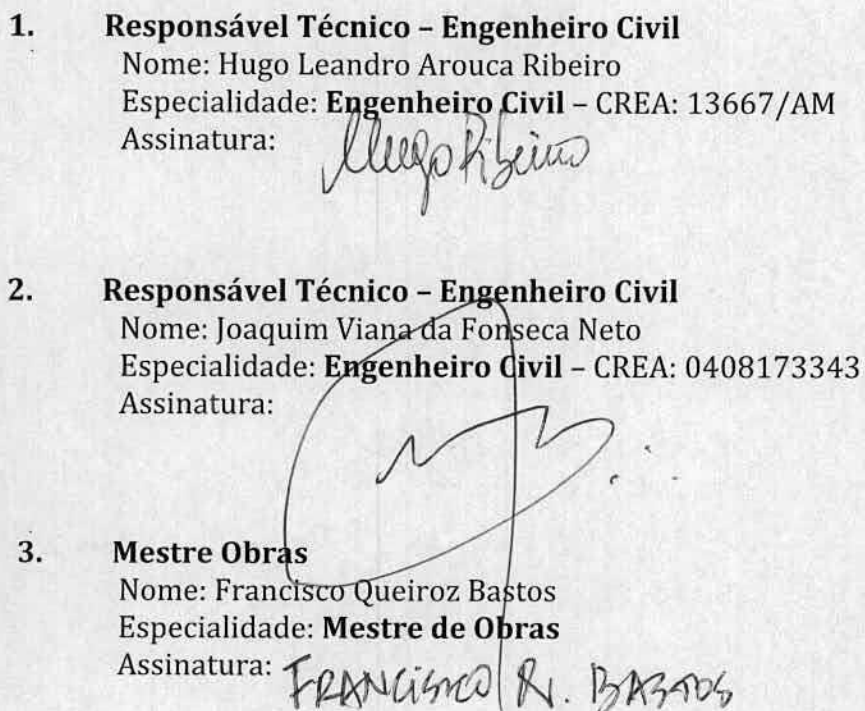 1. Responsável Técnico – Engenheiro Civil
Nome: Hugo Leandro Arouca Ribeiro
Especialidade: Engenheiro Civil – CREA: 13667/AM
Assinatura: Hugo Ribeiro
2. Responsável Técnico – Engenheiro Civil
Nome: Joaquim Viana da Fonseca Neto
Especialidade: Engenheiro Civil – CREA: 0408173343
Assinatura:
3. Mestre Obras
Nome: Francisco Queiroz Bastos
Especialidade: Mestre de Obras
Assinatura: FRANCISCO BASTOS